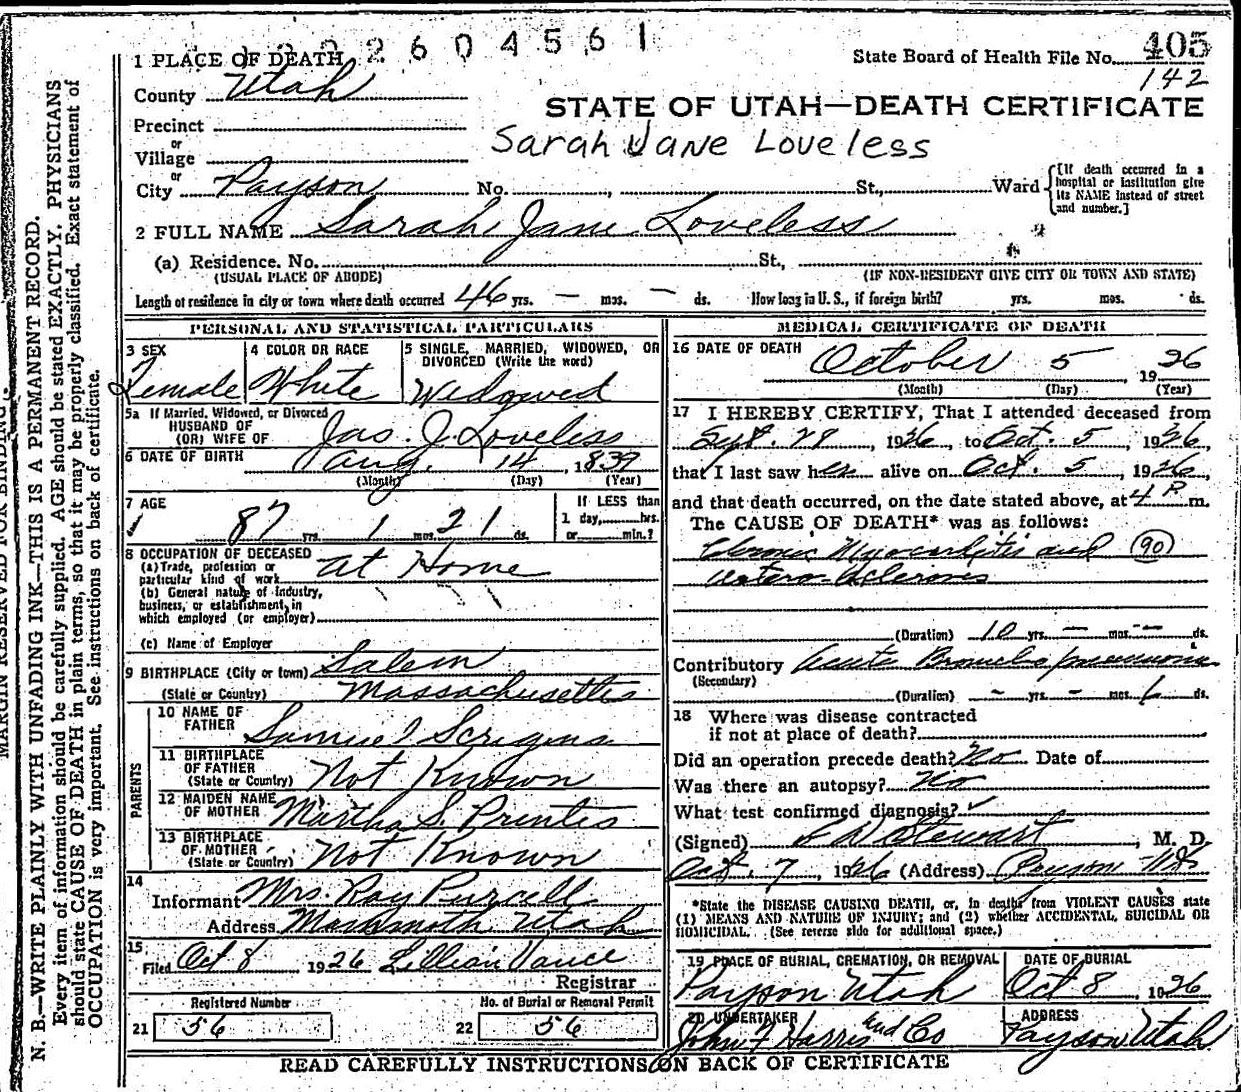 2604561
1 PLACE OF DEATH
State Board of Health File No. 405
142
County Utah
STATE OF UTAH—DEATH CERTIFICATE
Precinct
or
Village
Sarah Jane Loveless
or
City Payson No. , St., Ward {[If death occurred in a hospital or institution give its NAME instead of street and number.]
2 FULL NAME Sarah Jane Loveless
(a) Residence. No. St.,
(USUAL PLACE OF ABODE) (IF NON-RESIDENT GIVE CITY OR TOWN AND STATE)
Length of residence in city or town where death occurred 46 yrs. — mos. — ds. How long in U. S., if foreign birth? yrs. mos. ds.
PERSONAL AND STATISTICAL PARTICULARS
3 SEX
Female
4 COLOR OR RACE
White
5 SINGLE, MARRIED, WIDOWED, OR
DIVORCED (Write the word)
Widowed
5a If Married, Widowed, or Divorced
HUSBAND OF
(OR) WIFE OF Jas. J. Loveless
6 DATE OF BIRTH Aug. 14, 1839
(Month) (Day) (Year)
7 AGE
87 yrs. 1 mos. 21 ds.
If LESS than
1 day, hrs.
or min.?
8 OCCUPATION OF DECEASED
(a) Trade, profession or
particular kind of work at Home
(b) General nature of industry,
business, or establishment, in
which employed (or employer)
(c) Name of Employer
9 BIRTHPLACE (City or town) Salem
(State or Country) Massachusetts
PARENTS
10 NAME OF
FATHER Samuel Scrigins
11 BIRTHPLACE
OF FATHER
(State or Country) Not Known
12 MAIDEN NAME
OF MOTHER Martha S. Prentis
13 BIRTHPLACE
OF MOTHER
(State or Country) Not Known
14
Informant Mrs. Ray Purcell
Address Utah
15
Filed Oct 8 1926 Lillian Vance
Registrar
Registered Number
21 56
No. of Burial or Removal Permit
22 56
MEDICAL CERTIFICATE OF DEATH
16 DATE OF DEATH
October 5, 1926
(Month) (Day) (Year)
17 I HEREBY CERTIFY, That I attended deceased from
Sept. 29, 1926 to Oct. 5, 1926
that I last saw her alive on Oct. 5 1926,
and that death occurred, on the date stated above, at 4 P m.
The CAUSE OF DEATH* was as follows:
Chronic Myocarditis and (90)
(Duration) 10 yrs. — mos. — ds.
Contributory Acute Broncho pneumonia
(Secondary)
(Duration) - yrs. - mos. 6 ds.
18 Where was disease contracted
if not at place of death?
Did an operation precede death? No Date of
Was there an autopsy? No
What test confirmed diagnosis? ✓
(Signed) Stewart, M. D.
Oct. 7, 1926 (Address) Payson Ut
*State the DISEASE CAUSING DEATH, or, in deaths from VIOLENT CAUSES state
(1) MEANS AND NATURE OF INJURY; and (2) whether ACCIDENTAL, SUICIDAL OR
HOMICIDAL. (See reverse side for additional space.)
19 PLACE OF BURIAL, CREMATION, OR REMOVAL
Payson Utah
DATE OF BURIAL
Oct 8, 1926
20 UNDERTAKER
John F Harris and Co
ADDRESS
Payson Utah
READ CAREFULLY INSTRUCTIONS ON BACK OF CERTIFICATE
MARGIN RESERVED FOR BINDING.
N. B.—WRITE PLAINLY WITH UNFADING INK—THIS IS A PERMANENT RECORD.
Every item of information should be carefully supplied. AGE should be stated EXACTLY. PHYSICIANS
should state CAUSE OF DEATH in plain terms, so that it may be properly classified. Exact statement of
OCCUPATION is very important. See instructions on back of certificate.